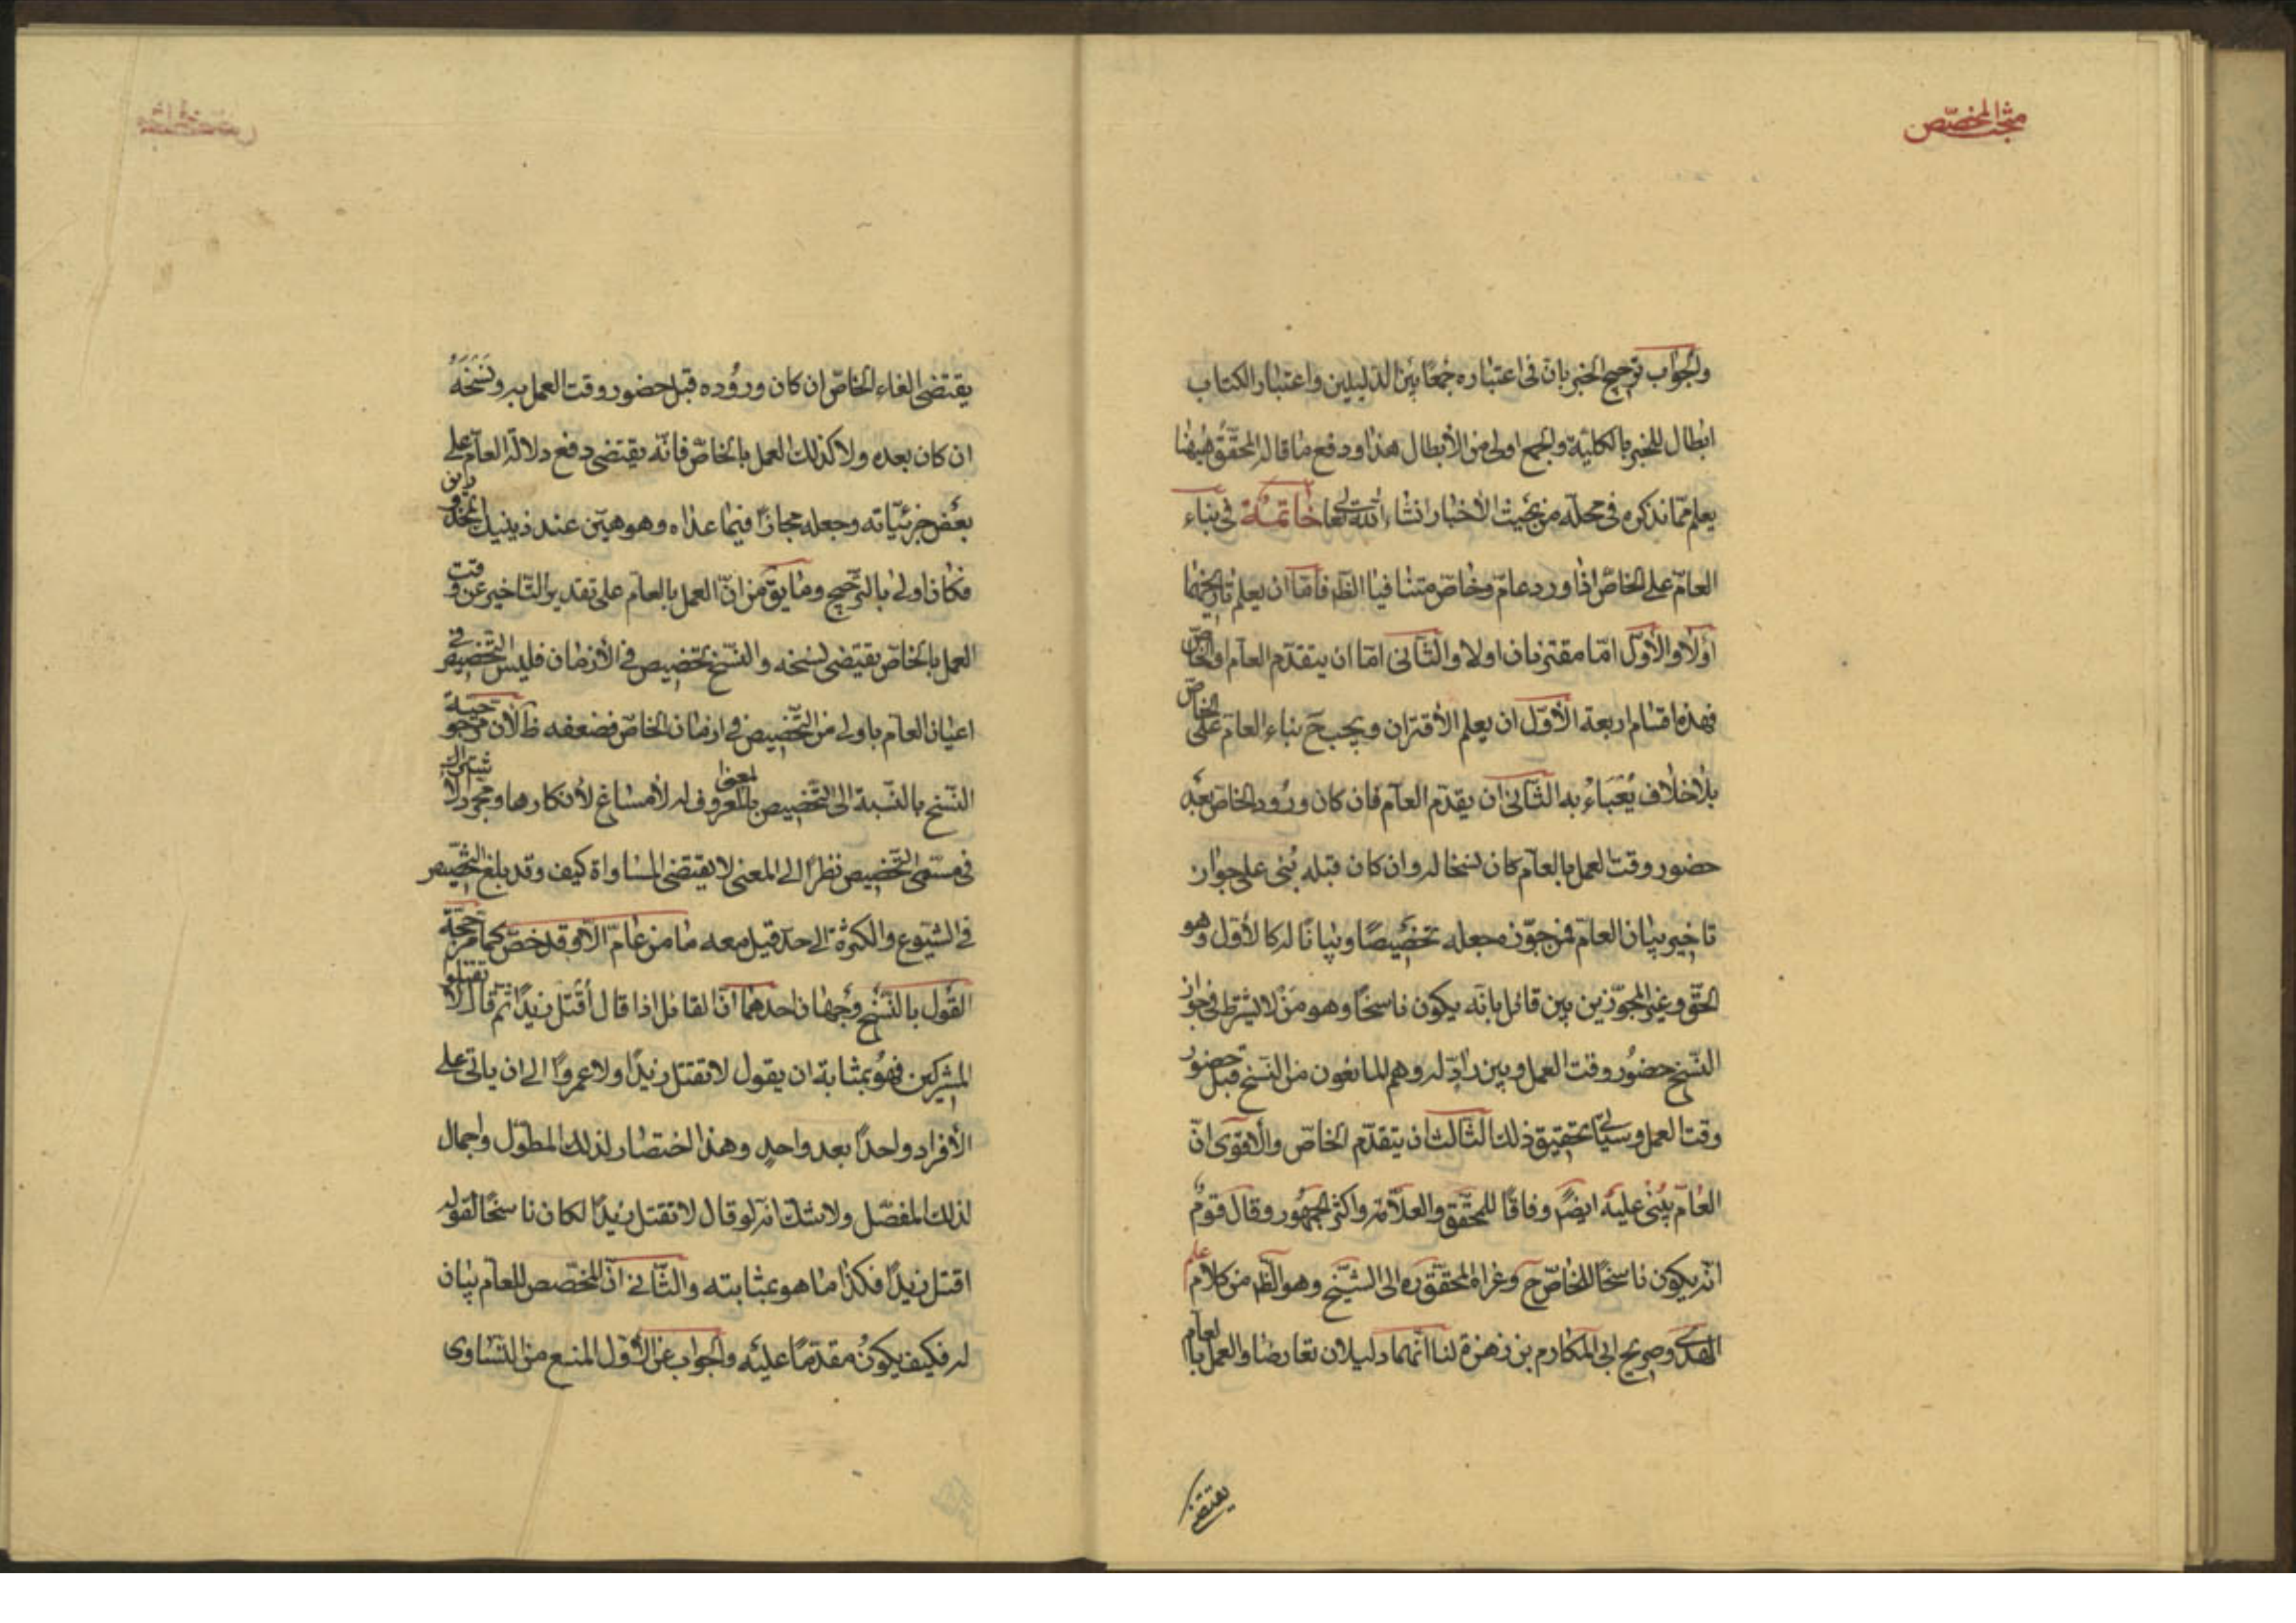 مبحث المخصّص
والجواب ترجيح الخبر بان فى اعتباره جمعًا بين الدليلين واعتبار الكتاب
ابطال للخبر بالكلية والجمع اولى من الأبطال هذا ودفع ما قاله المحقّق هيهنا
يعلم ممّا نذكره فى محله من بحيث الأخبار انشاء الله تعالى خاتمة فى بناء
العامّ على الخاصّ اذا ورد عامّ وخاصّ متنافيا الظّه فامّا ان يعلم تاريخهما
أولا والأول امّا مقترنان اولا والثّانى امّا ان يتقدّم العام او الخاصّ
فهذه اقسام اربعة الأوّل ان يعلم الأقتران ويجب ح بناء العام على الخاصّ
بلا خلاف يُعْبَاءُ به الثّانى ان يقدّم العام فان كان ورُود الخاص بعد
حضور وقت العمل بالعام كان نسخا له وان كان قبله بُنى على جواز
تاخير بيان العامّ فمن جوّزه جعله تخصيصًا وبيانًا له كالأوّل وهو
الحقّ وغير المجوّزين بين قائل بانّه يكون ناسخًا وهو من لا يشترط فى جواز
النّسخ حضُور وقت العمل وبين رادّ له وهم المانعُون من النسخ قبل حضور
وقت العمل وسياتى تحقيق ذلك الثّالث ان يتقدّم الخاصّ والأقوى انّ
العام يبْنى عليه ايضًا وفاقًا للمحقّق والعلّامة واكثر الجمهُور وقال قومٌ
انّه يكون ناسخًا للخاصّ ح وعزاه المحقّق ره الى الشيخ وهو الظّه من كلام علم
الهدى وصريح ابى المكارم بن زهرة لنا انّهما دليلان تعارضا والعمل بالعام
يقتضى
يقتضى الغاء الخاصّ ان كان ورُوده قبل حضور وقت العمل به ونَسْخَهُ
ان كان بعده ولا كذلك العمل بالخاصّ فانّه يقتضى دفع دلالة العام على
بعض جزئيّاته وجعله مجازًا فيما عداه وهو هيّن عند ذينيك المحذورين
فكان اولى بالترجيح وما يق من انّ العمل بالعام على تقدير التّاخير عن وقت
العمل بالخاصّ يقتضى نسخه والنّسخ تخصيص فى الأزمان فليس التّخصيص فى
اعيان العام باولى من التّخصيص فى ازمان الخاصّ فضعفه ظ لأن مرجوحيّة
النّسخ بالنّسبة الى التّخصيص بالمعنى المعروف له لا مساغ لأنكارها ومجرّد الأشتراك
فى مسمّى التّخصيص نظرًا الى المعنى لا يقتضى المساواة كيف وقد بلغ التّخصيص
فى الشّيوع والكثرة الى حدّ قيل معه ما من عامّ الّا وقد خصّ كما مرّ حجّة
القول بالنّسخ وجهان احدهما انّ القائل اذا قال أقتل زيدًا ثم قال لا تقتلوا
المشركين فهُو بمثابة ان يقول لا تقتل زيدًا ولا عمروًا الى ان ياتى على
الأفراد واحدًا بعد واحدٍ وهذا اختصار لذلك المطوّل واجمال
لذلك المفصّل ولا شك انّه لو قال لا تقتل زيدًا لكان ناسخًا لقوله
اقتل زيدًا فكذا ما هو بمثابته والثّانى انّ المخصّص للعام بيان
له فكيف يكونُ مقدّمًا عليه والجواب عن الأوّل المنع من التّساوى